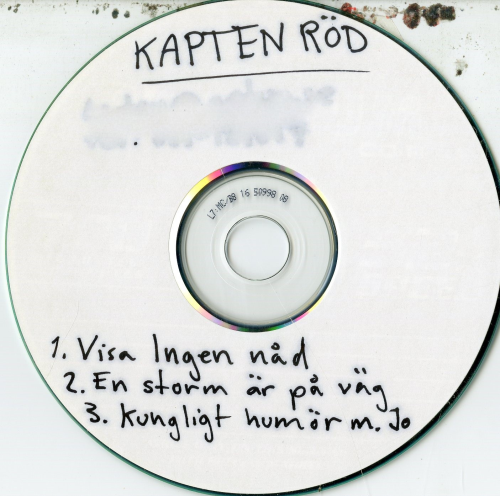 KAPTEN RÖD
LJ:MC/BB 16 50998 08
1. Visa Ingen nåd
2. En storm är på väg
3. Kungligt humör m. Jo